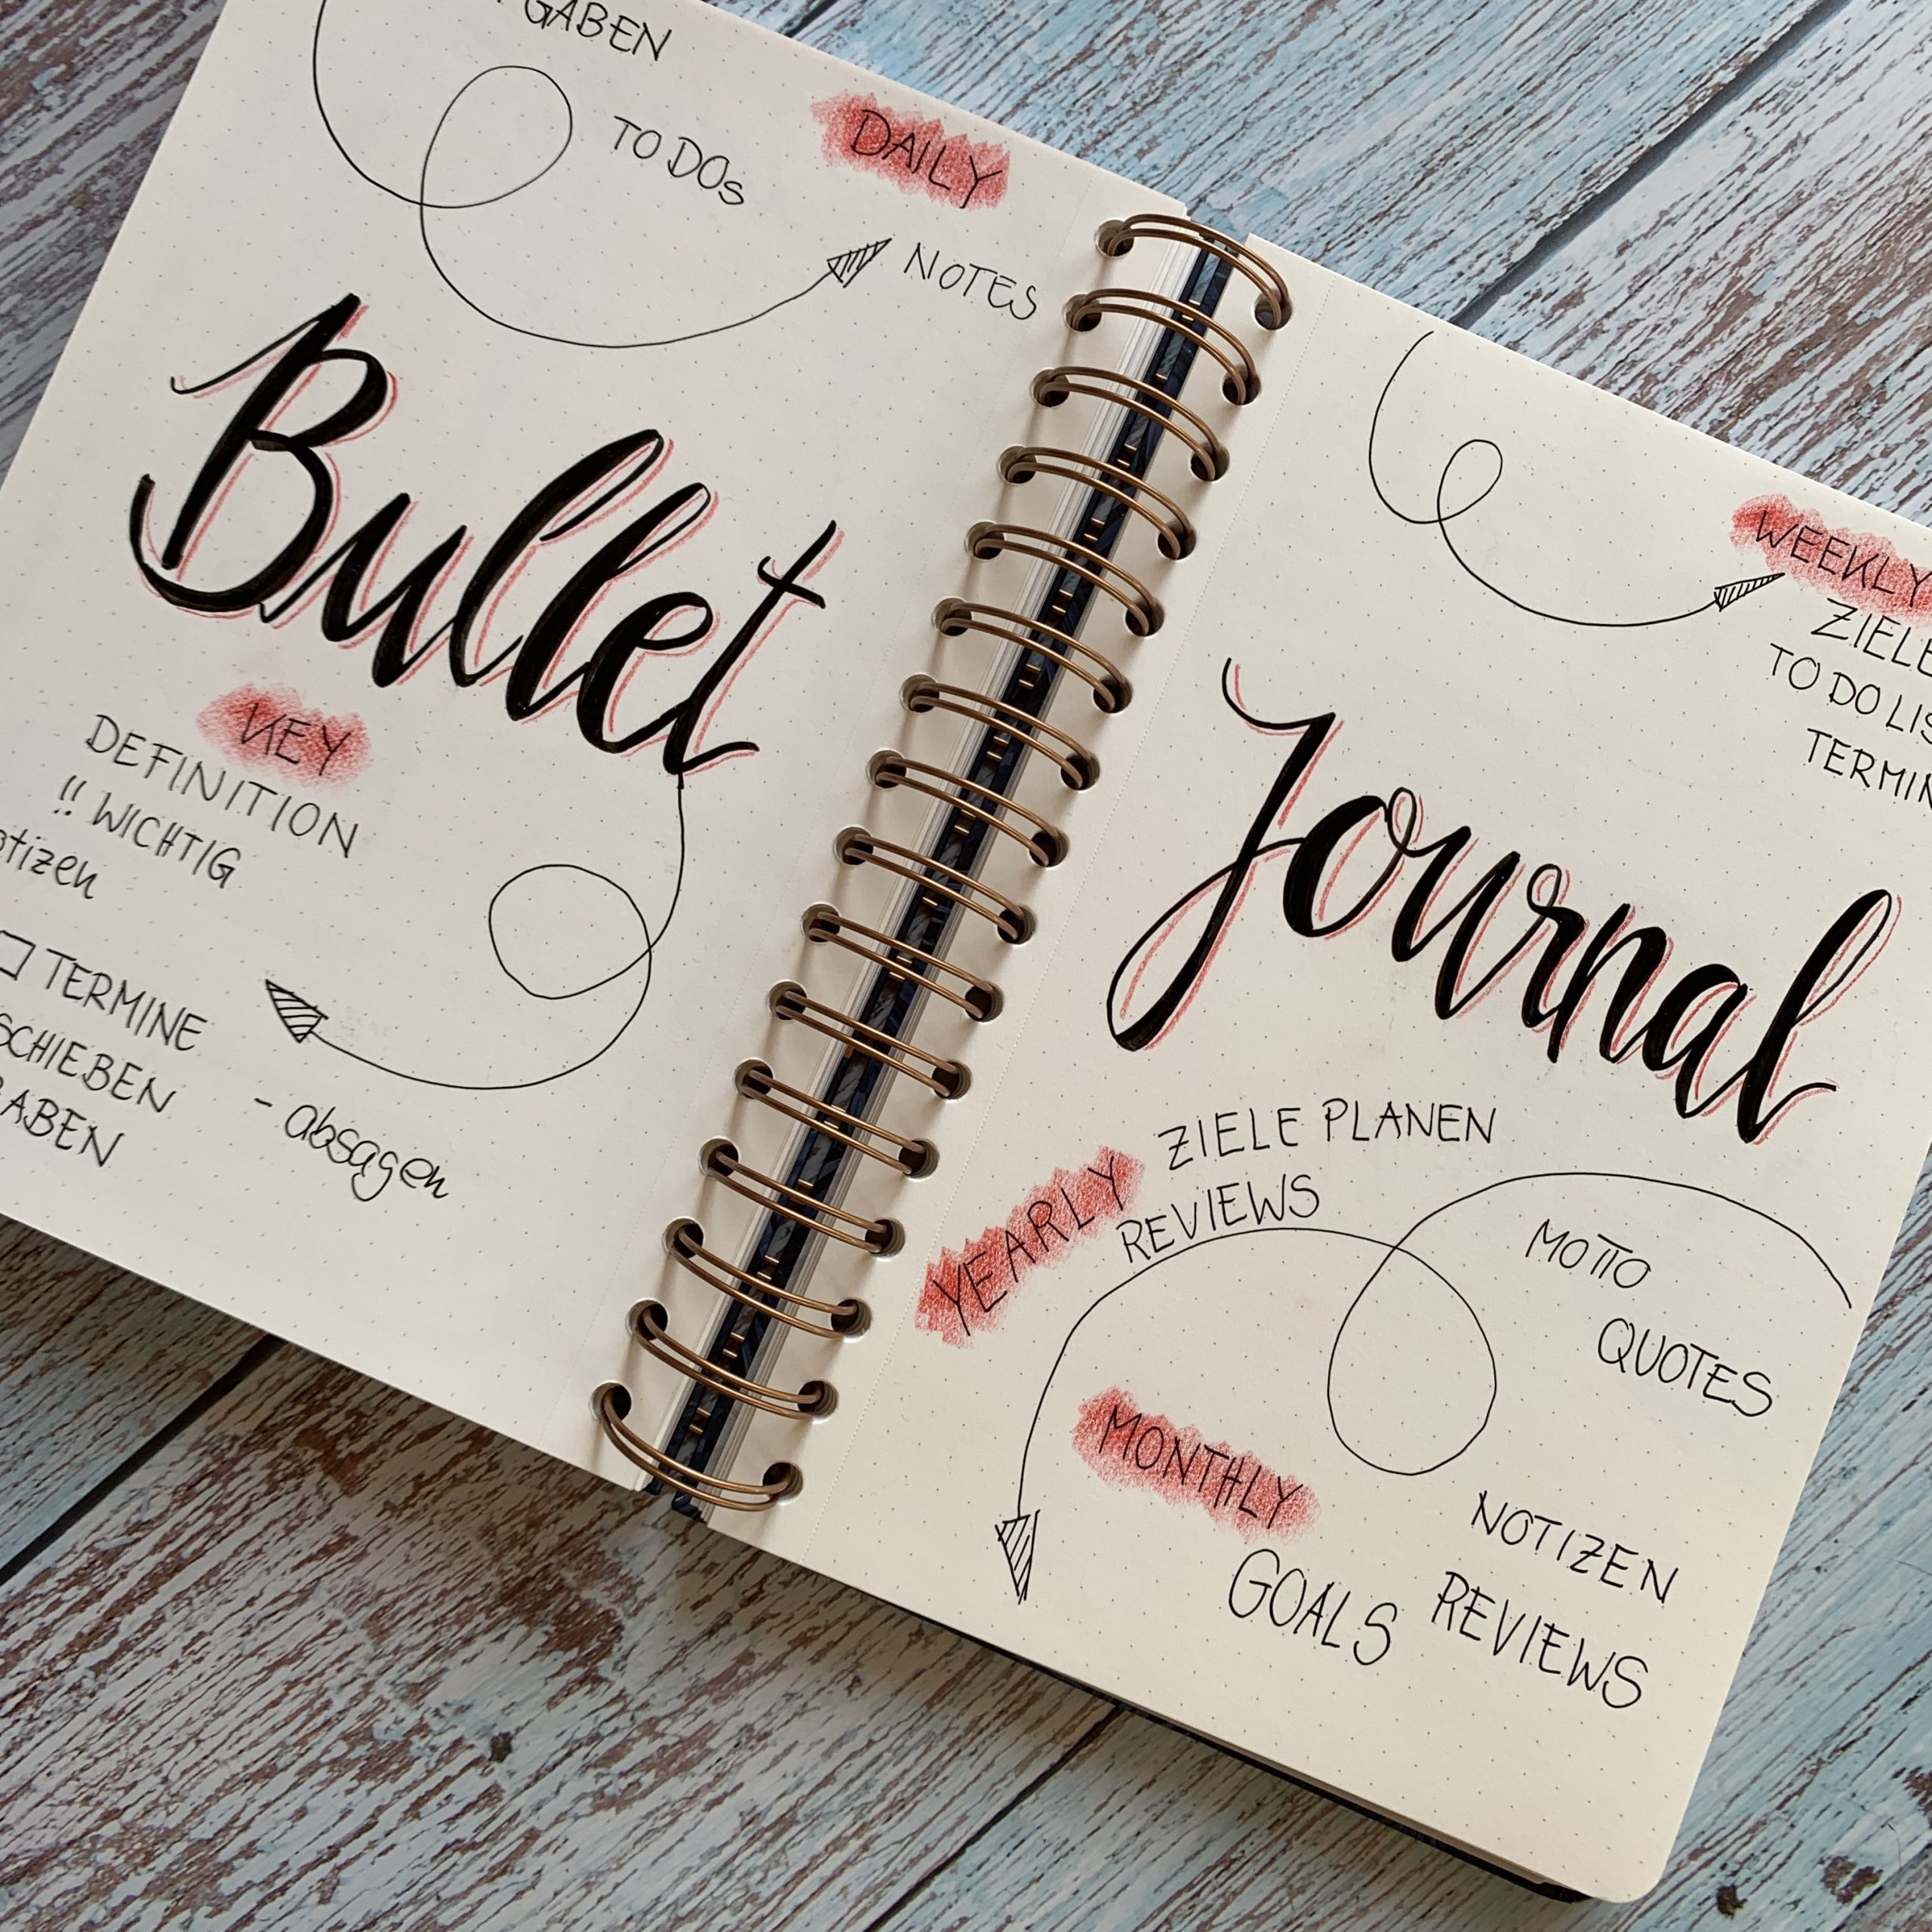 GABEN
TO DOs
DAILY
NOTES
Bullet
KEY
DEFINITION
!! WICHTIG
otizen
TERMINE
SCHIEBEN
ABEN
- absagen
WEEKLY
ZIELE
TO DO LIS
TERMIN
Journal
ZIELE PLANEN
YEARLY
REVIEWS
MOTTO
QUOTES
MONTHLY
NOTIZEN
GOALS
REVIEWS